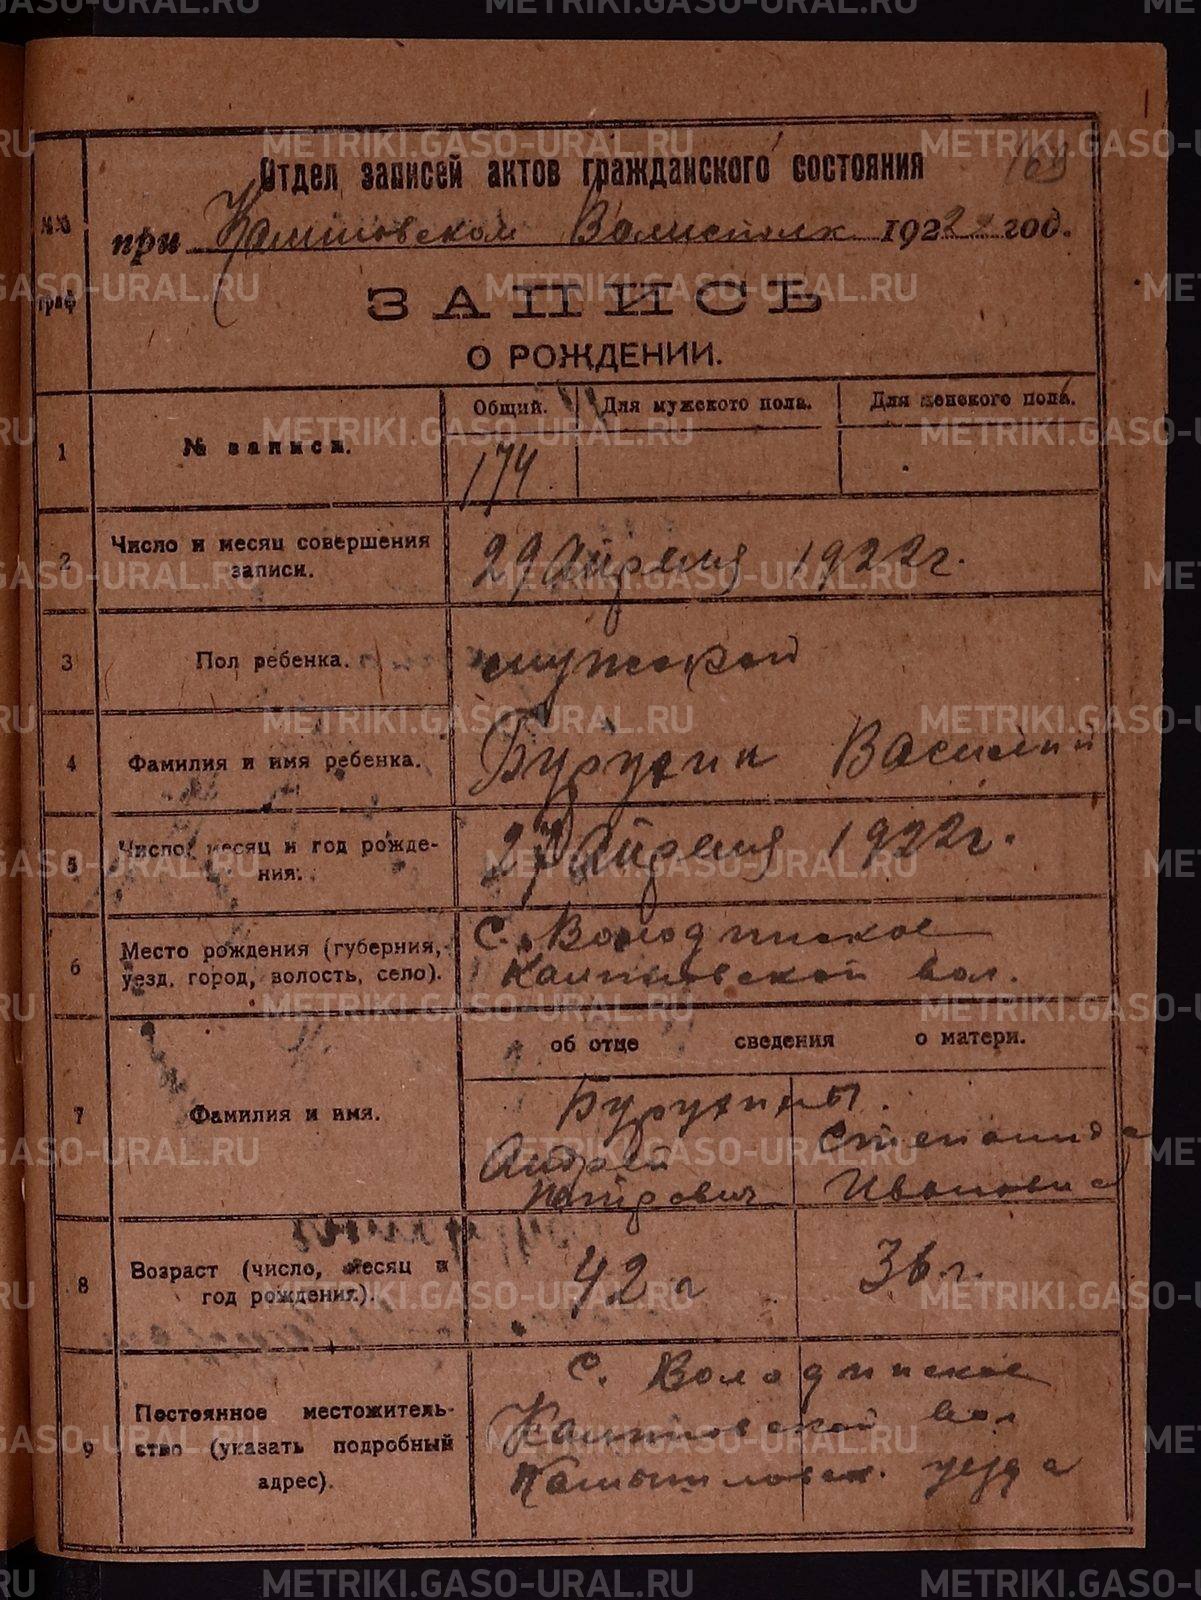 169
Отдел записей актов гражданского состояния
№№ граф
при Калиновской Волисполк. 1922 год.
ЗАПИСЬ
О РОЖДЕНИИ.
Общий. Для мужского пола. Для женского пола.
1 № записи. 174
2 Число и месяц совершения записи. 29 Апреля 1922г.
3 Пол ребенка. мужской
4 Фамилия и имя ребенка. Бурухин Василий
5 Число, месяц и год рождения. 27 Апреля 1922г.
6 Место рождения (губерния, уезд, город, волость, село). С. Володинское
Калиновской вол.
об отце сведения о матери.
7 Фамилия и имя. Бурухины.
Андрей Степанида
Петрович Ивановна
8 Возраст (число, месяц и год рождения). 42 г 36 г.
9 Постоянное местожительство (указать подробный адрес). с. Володинское
Калиновской вол
Камышловск. уезда
METRIKI.GASO-URAL.RU